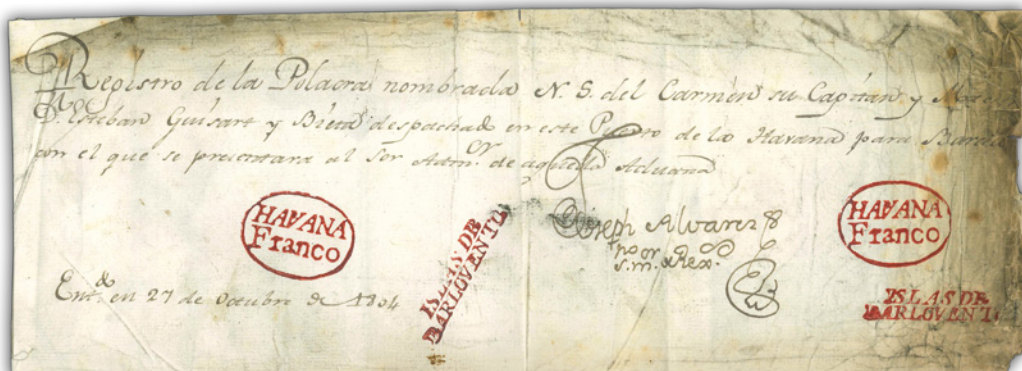 Registro de la Polacra nombrada N. S. del Carmen su Capitan y
Dn. Esteban Guisart y despachad en este Puerto de la Havana para
con el que se presentara al Sor Admor. de aquella Aduana
HAVANA
Franco
ISLAS DE
BARLOVENTO
Joseph Alvarez
por
S. M.
HAVANA
Franco
ISLAS DE
BARLOVENTO
en 27 de Octubre de 1804